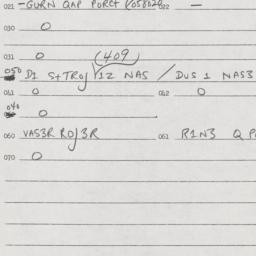 021 - GURN QAP PORCT 022 —
030 0
031 0 (409)
050 D1 S+TROJ Y1Z NAS / DUS 1 NAS3
061 0 062 0
040 0
060 VAS3R ROJ3R 061 R1N3 Q P
070 0